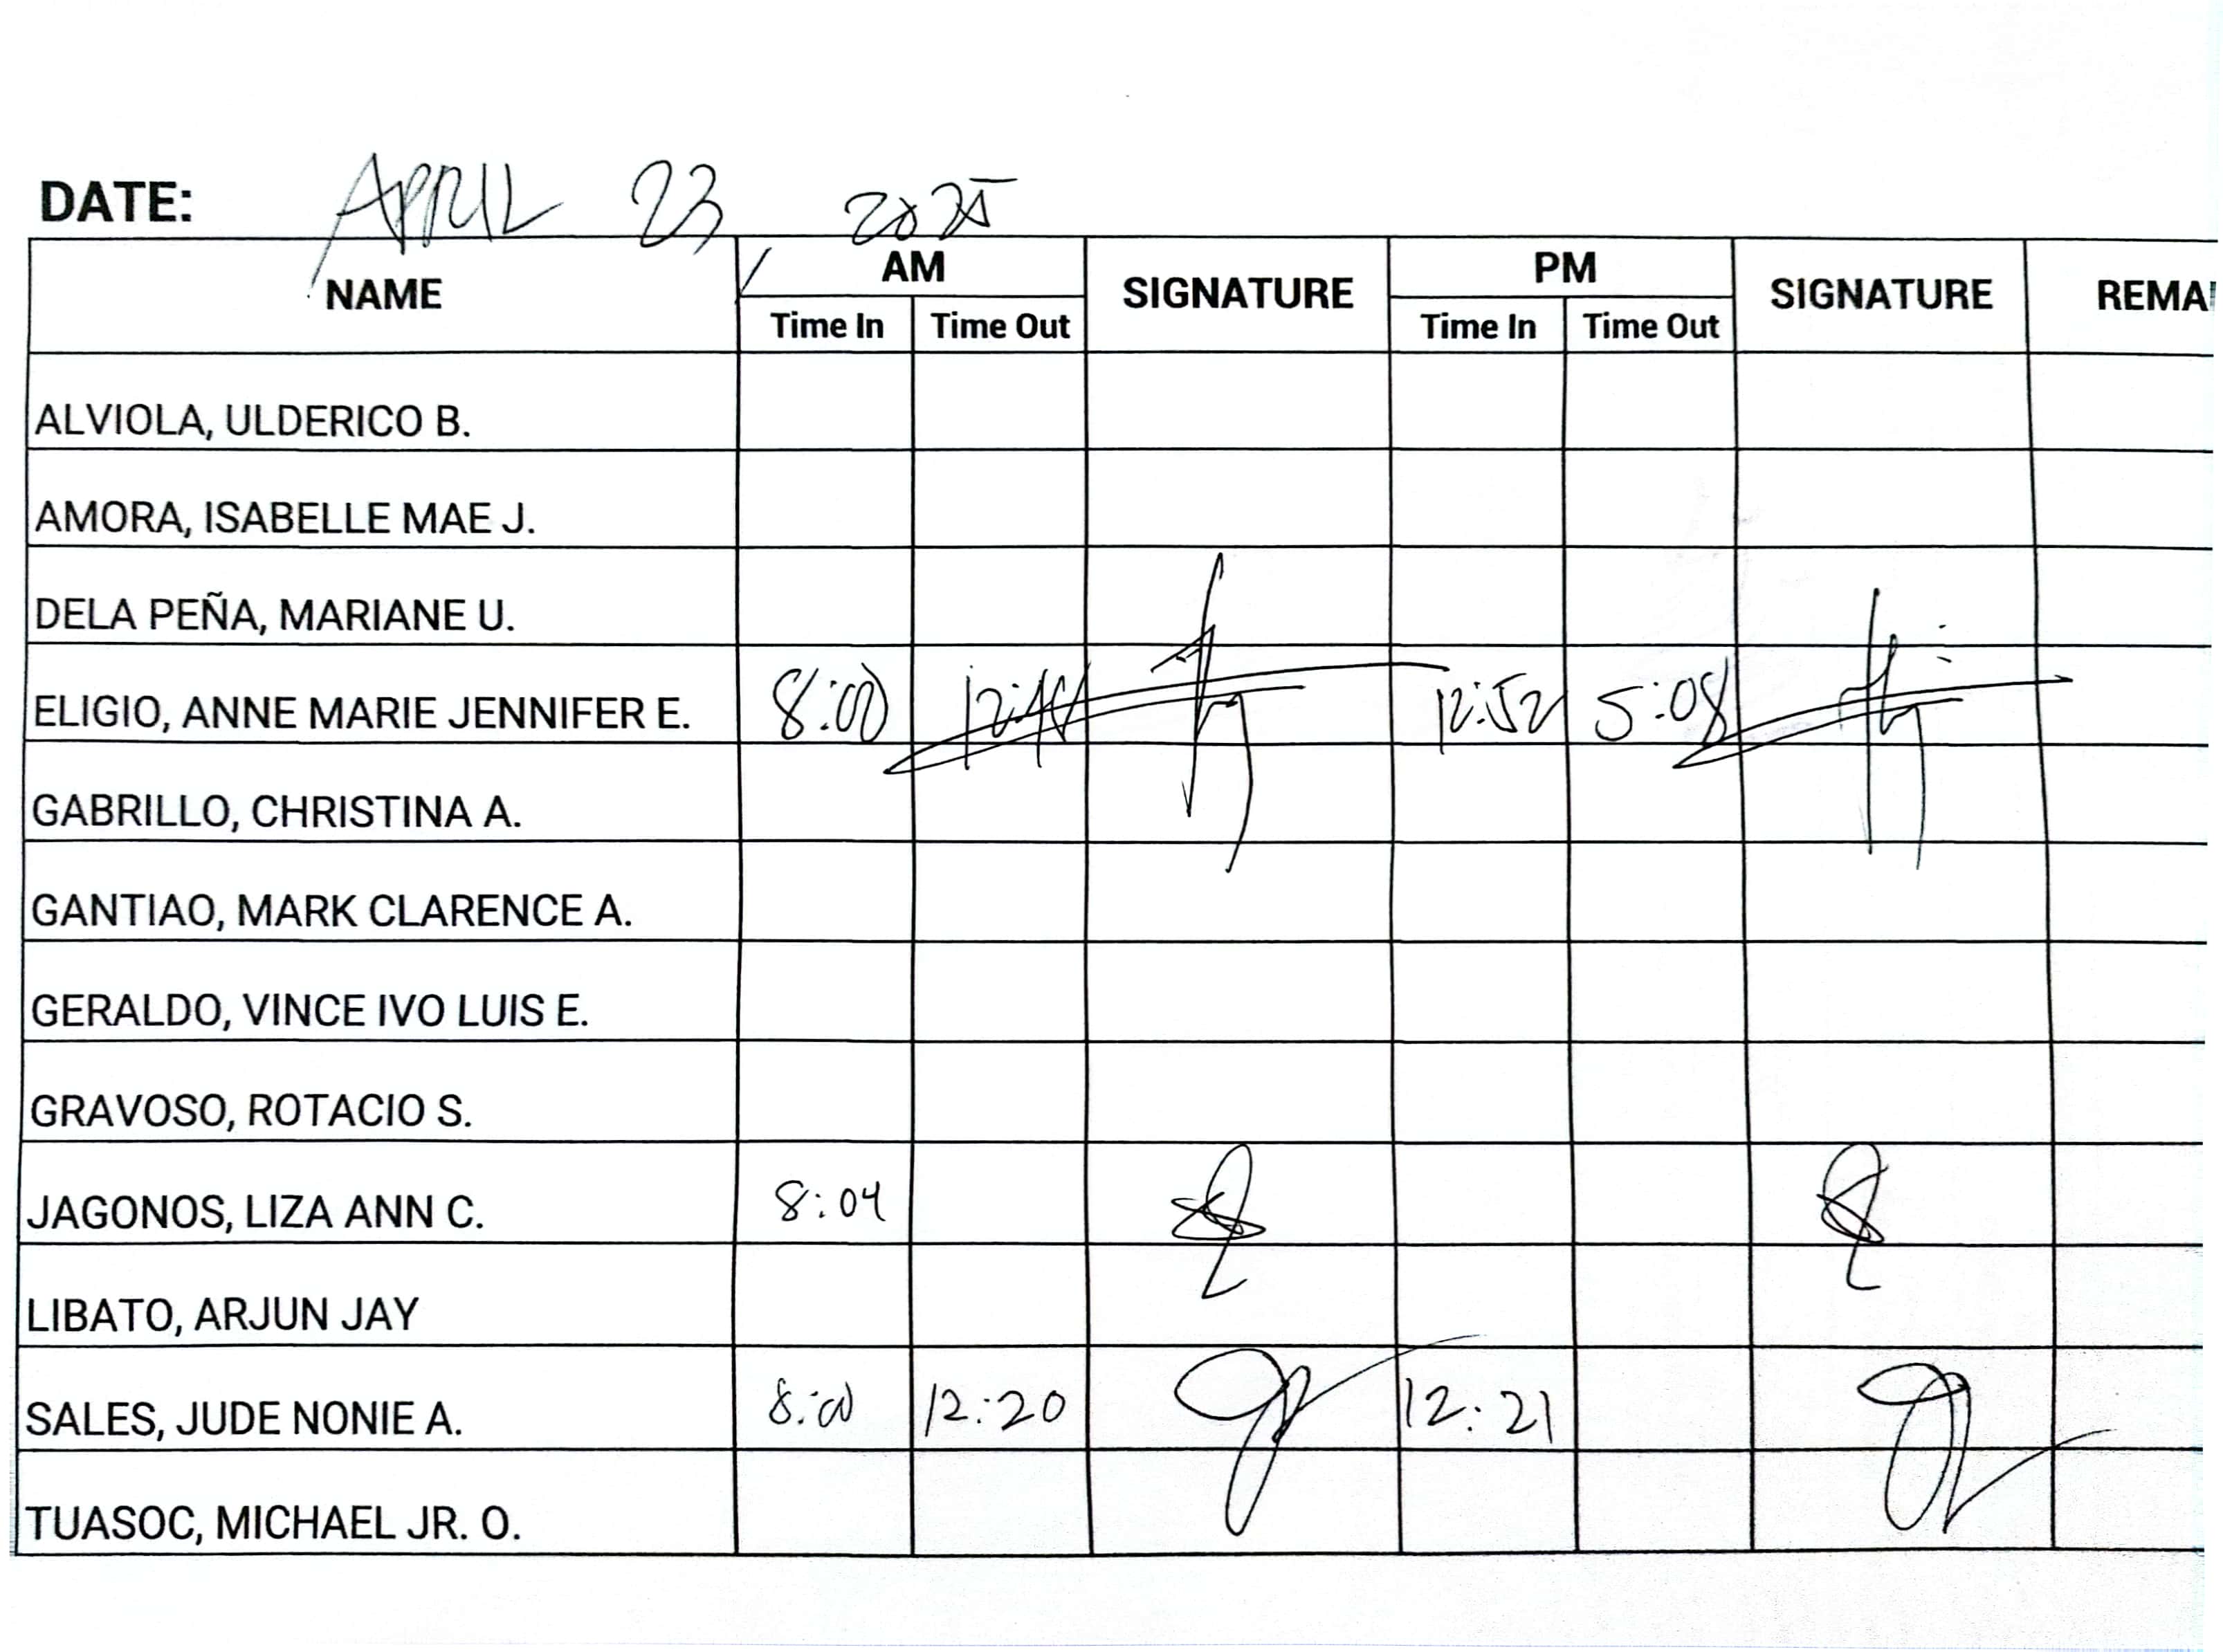 DATE: APRIL 23, 2025
NAME AM SIGNATURE PM SIGNATURE REMA
Time In Time Out Time In Time Out
ALVIOLA, ULDERICO B.
AMORA, ISABELLE MAE J.
DELA PEÑA, MARIANE U.
ELIGIO, ANNE MARIE JENNIFER E. 8:00 12:52 5:08
GABRILLO, CHRISTINA A.
GANTIAO, MARK CLARENCE A.
GERALDO, VINCE IVO LUIS E.
GRAVOSO, ROTACIO S.
JAGONOS, LIZA ANN C. 8:04
LIBATO, ARJUN JAY
SALES, JUDE NONIE A. 8:00 12:20 12:21
TUASOC, MICHAEL JR. O.